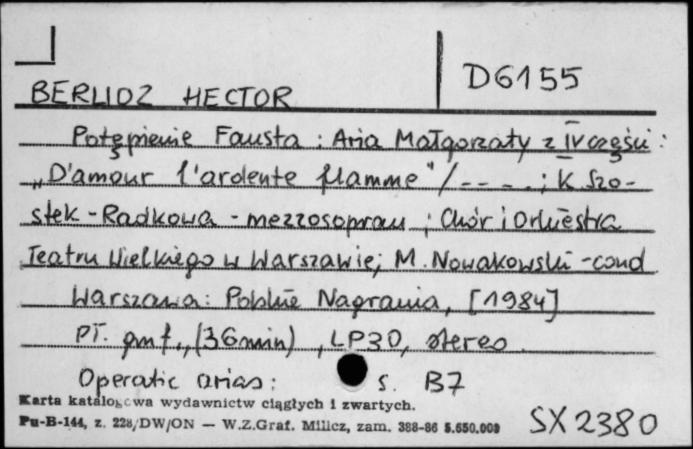 D6155
BERLIOZ HECTOR
Potępienie Fausta : Aria Małgorzaty z IV części :
„D'amour l'ardente flamme" / -- - . ; K. Szo-
stek - Radkowa - mezzosopran ; Chór i Orkiestra
Teatru Wielkiego w Warszawie; M. Nowakowski - cond
Warszawa : Polskie Nagrania, [1984]
Pł. gmf., (36 min) , LP30, stereo
Operatic arias : s. B7
Karta katalogowa wydawnictw ciągłych i zwartych.
Pu-B-144, z. 228/DW/ON — W.Z.Graf. Milicz, zam. 388-86 5.650.000
SX 2380